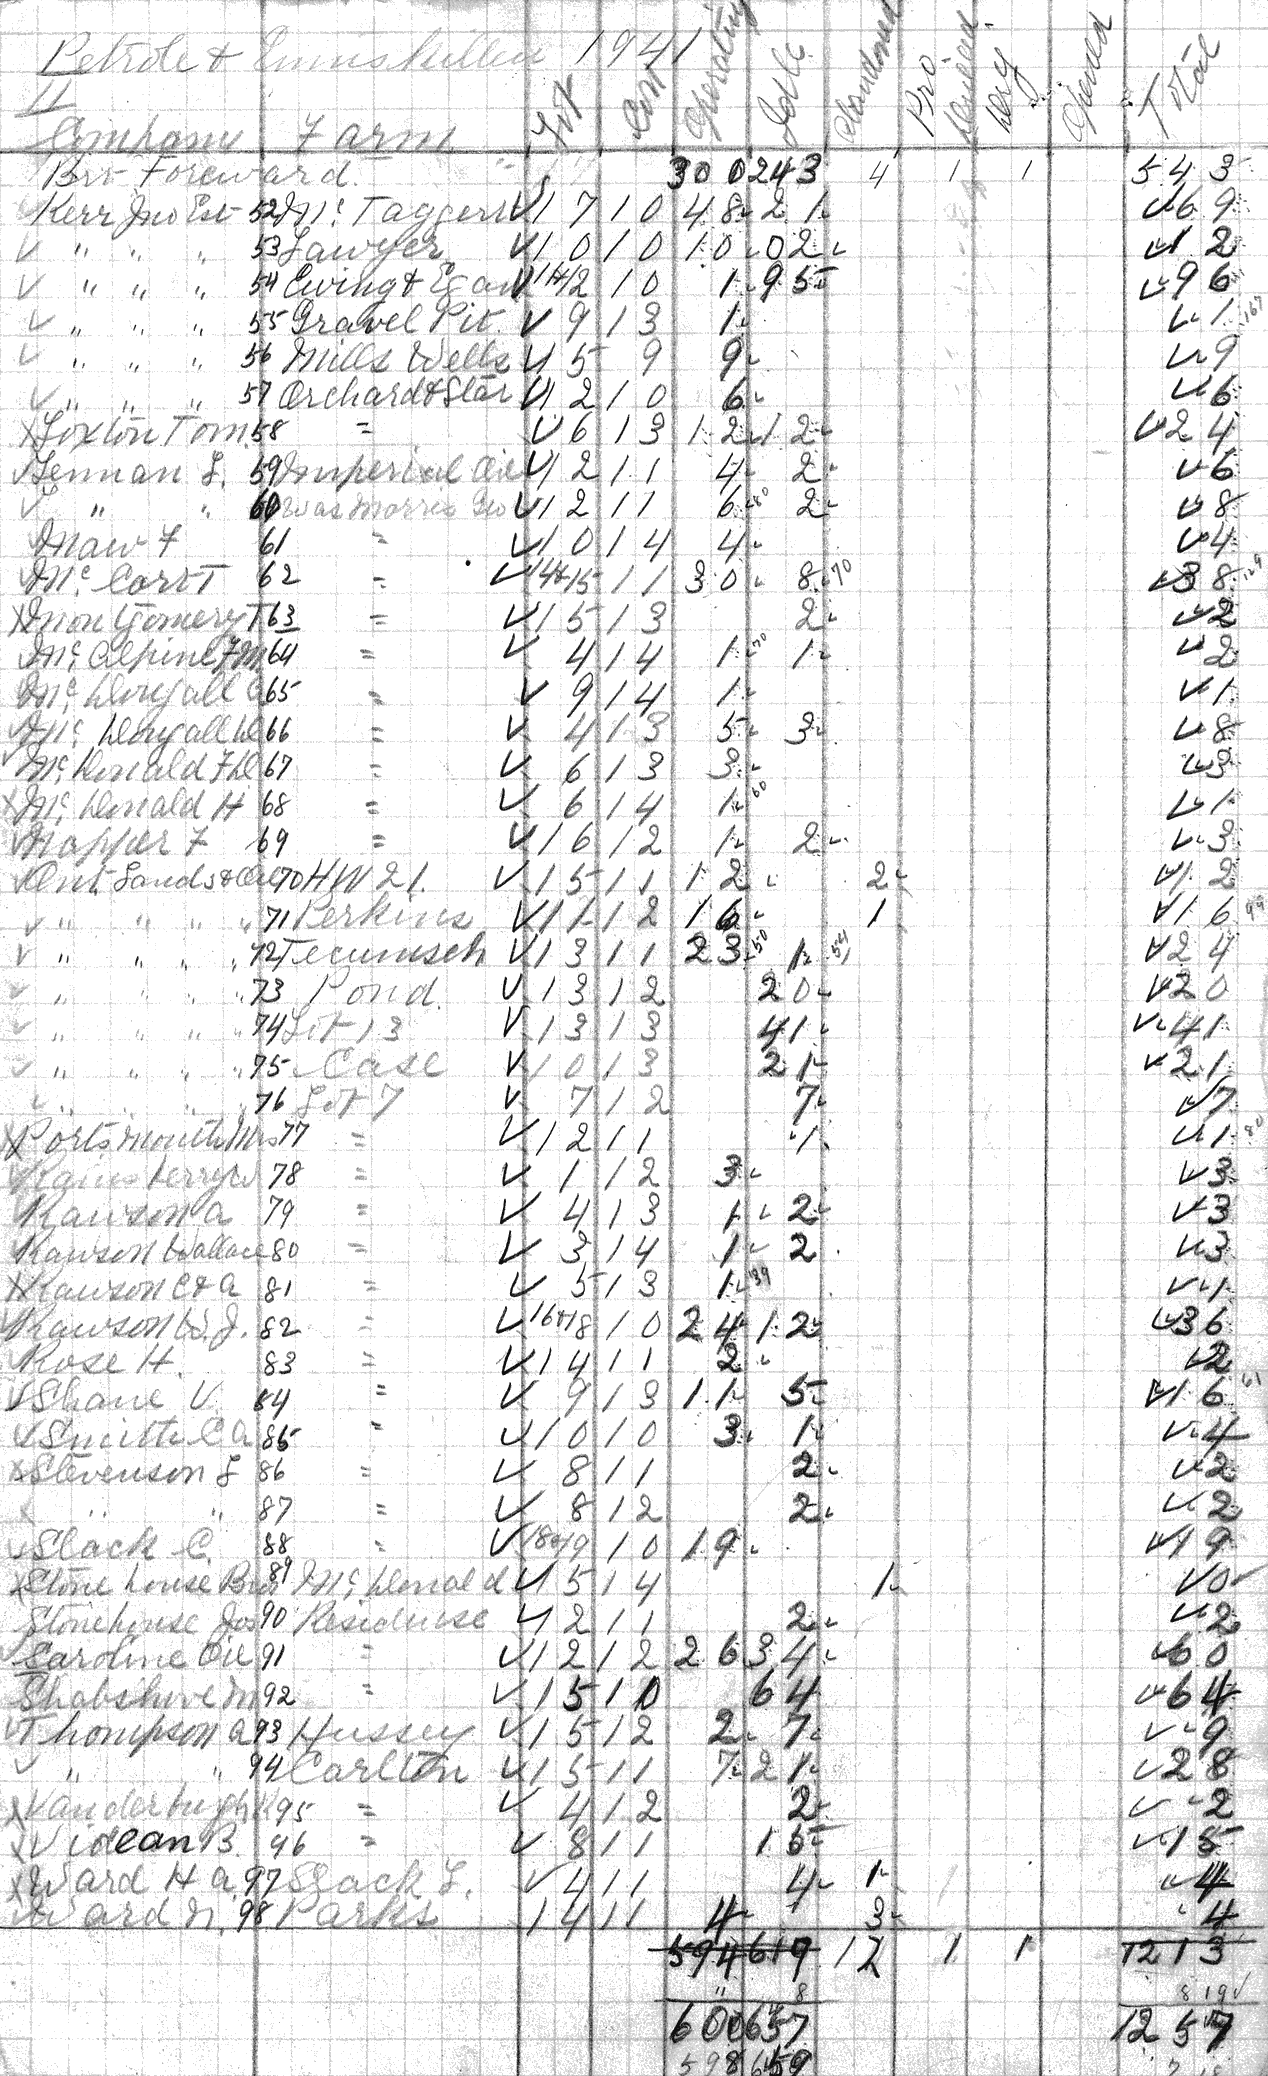 Petrolia & Enniskillen 1941
11
Company Farm Lot Con Operating Idle Abandoned Pro Total
Bro Foreward. 300 243 4 1 1 543
Kerr Jno Est 52 Mc Taggert 17 10 48 21 69
" " " 53 Sawyer 10 10 10 02 12
" " " 54 Ewing & Egan 11&12 10 1 95 96
" " " 55 Gravel Pit 9 13 1 1
" " " 56 Mills Wells 15 9 9 9
" " " 57 Orchard & Star 12 10 6 6
Loxton Tom 58 = 6 13 12 12 24
Lennan L. 59 Imperial Oil 12 11 4 2 6
" " 60 was Morris Geo 12 11 6 2 8
Maw F 61 = 10 14 4 4
Mc Cort T 62 = 14&15 11 30 8 70 38
Montgomery T 63 = 15 13 2 2
Mc Alpine F M 64 = 4 14 1 1 2
Mc Dougall 65 = 9 14 1 1
Mc Dougall D 66 = 4 13 5 3 8
Mc Donald F D 67 = 6 13 3 3
Mc Donald H 68 = 6 14 1 60 1
Napper F 69 = 16 12 1 2 3
Ont. Lands & Oil 70 HW 21. 15 11 12 2 12
" " " " 71 Perkins 11 12 16 1 16 99
" " " " 72 Tecumseh 13 11 23 50 1 24
" " " " 73 Pond. 13 12 20 20
" " " " 74 Lot 13 13 13 41 41
" " " " 75 Case 10 13 21 21
" " " " 76 Lot 7 7 12 7 7
Portsmouth Mrs 77 = 12 11 1 1 80
78 = 1 12 3 3
Rawson A 79 = 4 13 1 2 3
Rawson Wallace 80 = 3 14 1 2 3
Rawson C & A 81 = 5 13 1 39 1
Rawson W. J. 82 = 16&18 10 24 12 36
Rose H. 83 = 14 11 2 2
Shane V. 84 = 9 13 11 5 16 61
Smith C A 85 = 10 10 3 1 4
Stevenson L 86 = 8 11 2 2
" " 87 = 8 12 2 2
Slack C. 88 = 18&19 10 19 19
Stone house Bros 89 Mc Donald 15 14 1 0
Stonehouse Jos 90 Residense 12 11 2 2
Caroline Oil 91 = 12 12 26 34 60
92 = 15 10 64 64
Thompson A 93 Hussey 15 12 2 7 9
" " 94 Carlton 15 11 7 21 28
95 = 4 12 2 2
Videan B. 96 = 8 11 15 15
Ward H A. 97 Slack L. 4 11 4 1 4
Ward N. 98 Parks 14 11 4 3 4
594 619 12 1 1 1213
" 8 819
600 657 1257
598 659